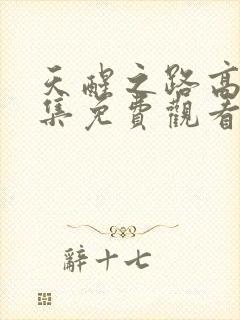 天醒之路高
集免費觀看
辭十七